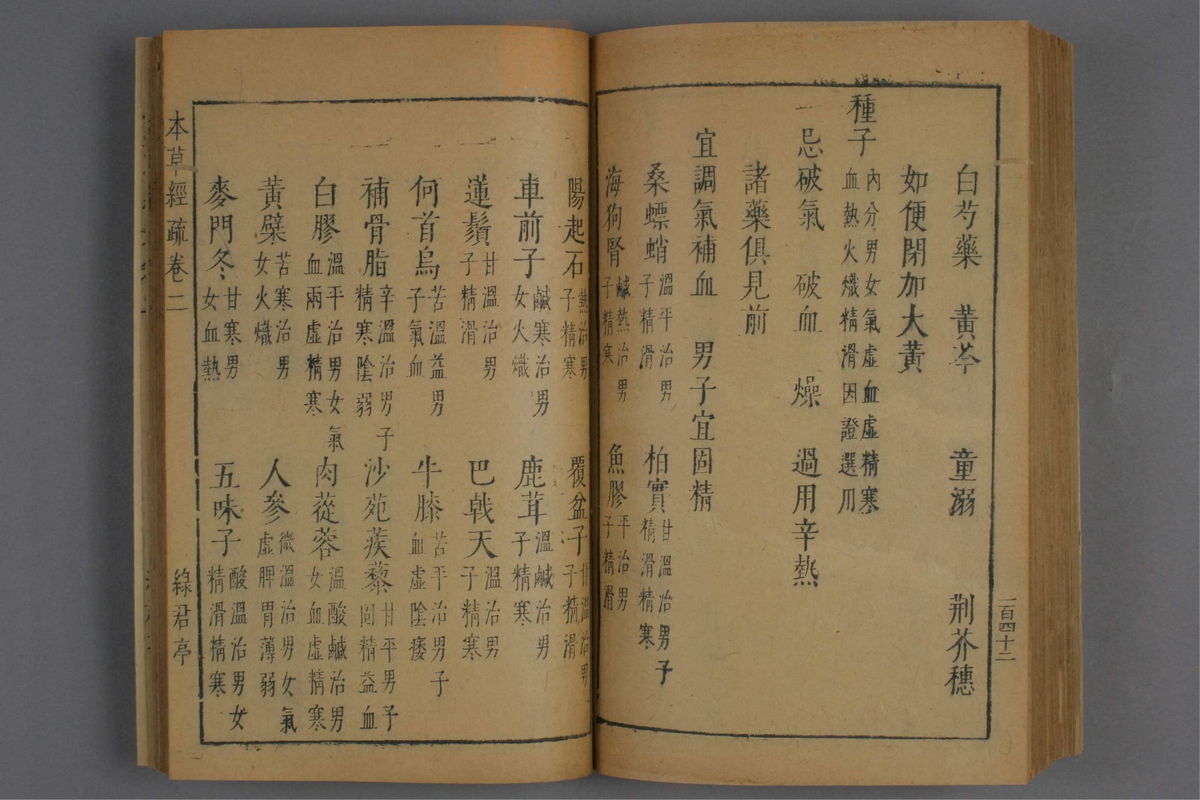 白芍藥　黃芩　童溺　荆芥穗
如便閉加大黃
種子内分男女氣虛血虛精寒血熱火熾精滑因證選用
忌破氣　破血　燥　過用辛熱
諸藥俱見前
宜調氣補血　男子宜固精
桑螵蛸溫平治男子精滑　柏實甘溫治男子精滑精寒
海狗腎鹹熱治男子精寒　魚膠平治男子精滑
一百四十二
陽起石熱治男子精寒　覆盆子甘溫治男子精滑
車前子鹹寒治男女火熾　鹿茸溫鹹治男子精寒
蓮鬚甘溫治男子精滑　巴戟天溫治男子精寒
何首烏苦溫益男子氣血　牛膝苦平治男子血虛陰痿
補骨脂辛溫治男子精寒陰弱　沙苑蒺藜甘平男子固精益血
白膠溫平治男女氣血兩虛精寒　肉蓯蓉溫酸鹹治男女血虛精寒
黃蘗苦寒治男女火熾　人參微溫治男女氣虛脾胃薄弱
麥門冬甘寒男女血熱　五味子酸溫治男女精滑精寒
本草經疏卷二　綠君亭